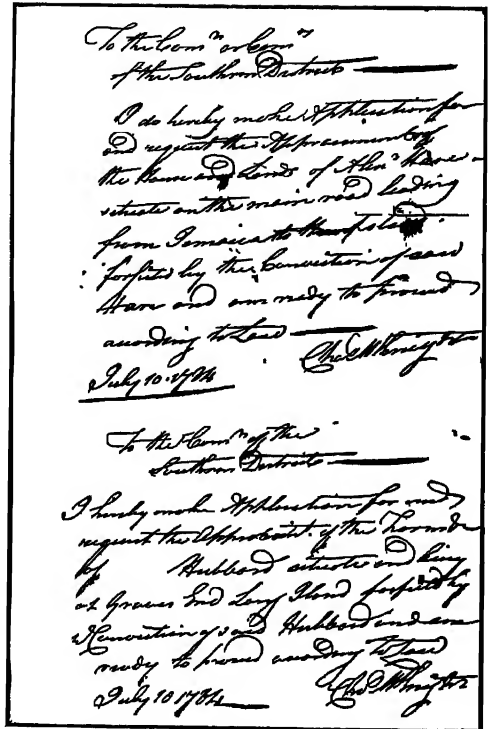 To the Com<sup>rs</sup> or Com<sup>r</sup>
of the Southern District
I do hereby make Application for
and request the Appraisement of
the House and Lands of Alex<sup>r</sup> Hare
situate on the main road leading
from Jamaica to
forfited by the Conviction of said
Hare and am ready to proceed
according to Law
Cha<sup>s</sup> McKnight
July 10. 1784
To the Com<sup>rs</sup> of the
Southern District
I hereby make Application for and
request the of the
of Hubbard situate and lying
at Graves End Long Island forfited by
Conviction of said Hubbard and am
ready to proceed according to Law
July 10 1784